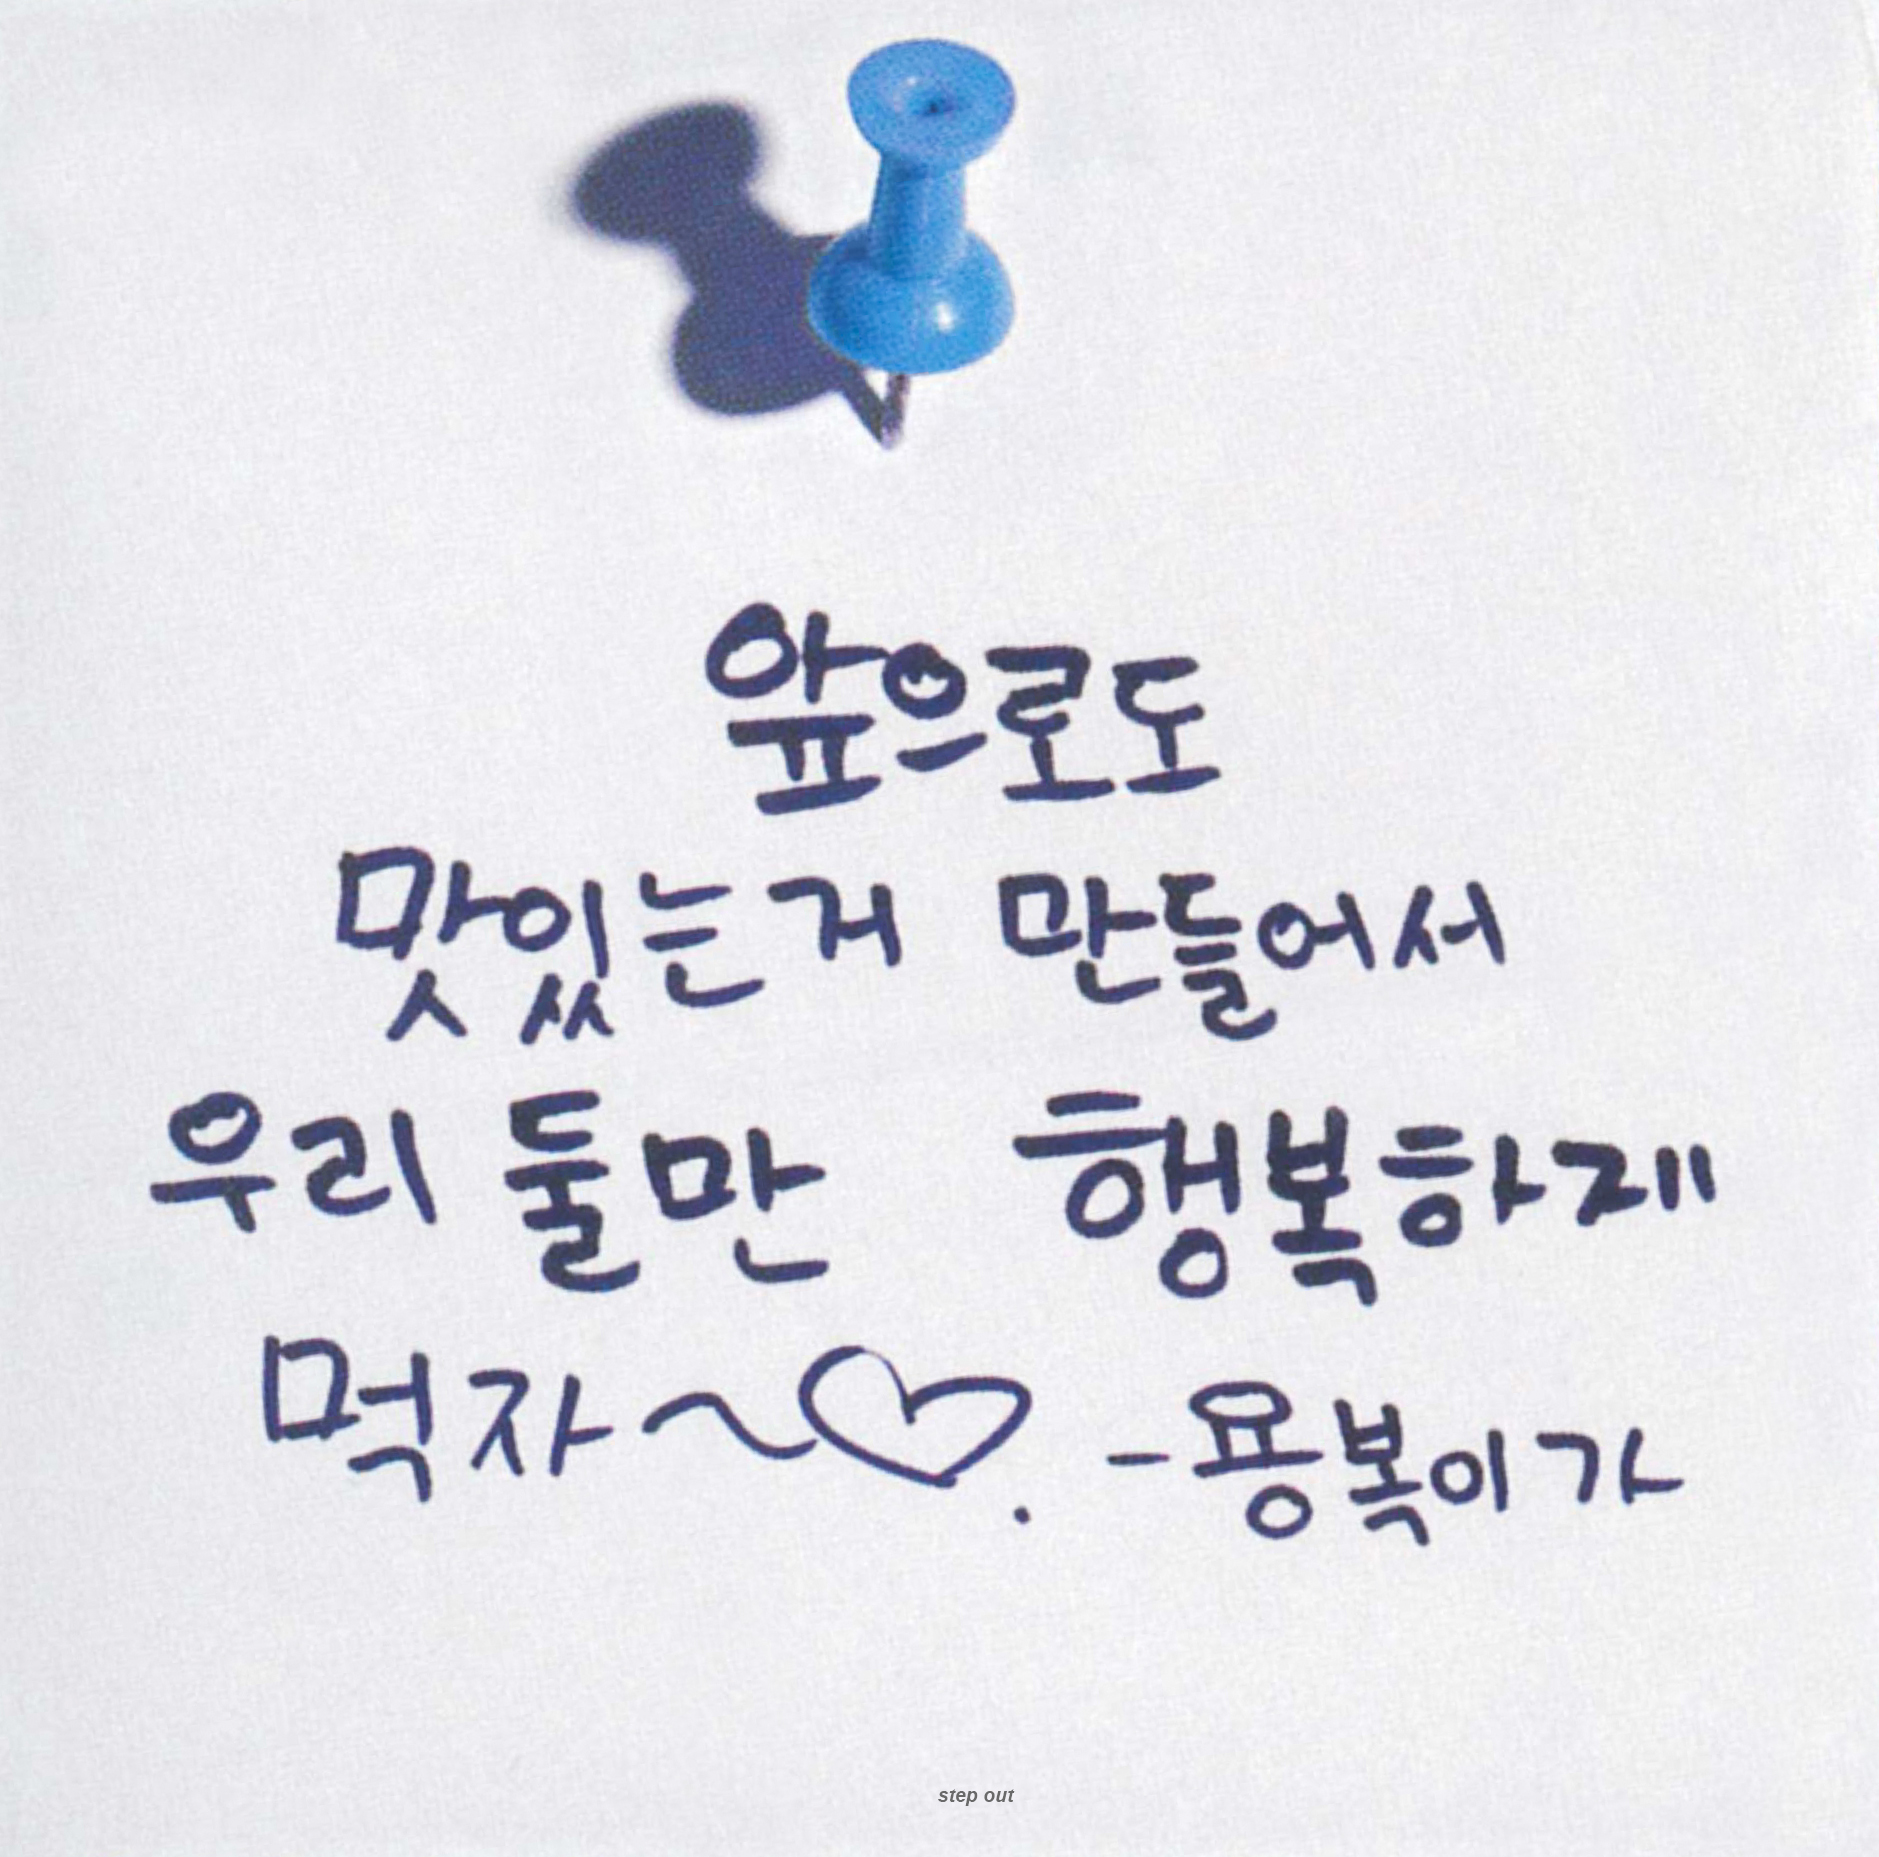 앞으로도
맛있는거 만들어서
우리 둘만 행복하게
먹자~♡. -용복이가
step out